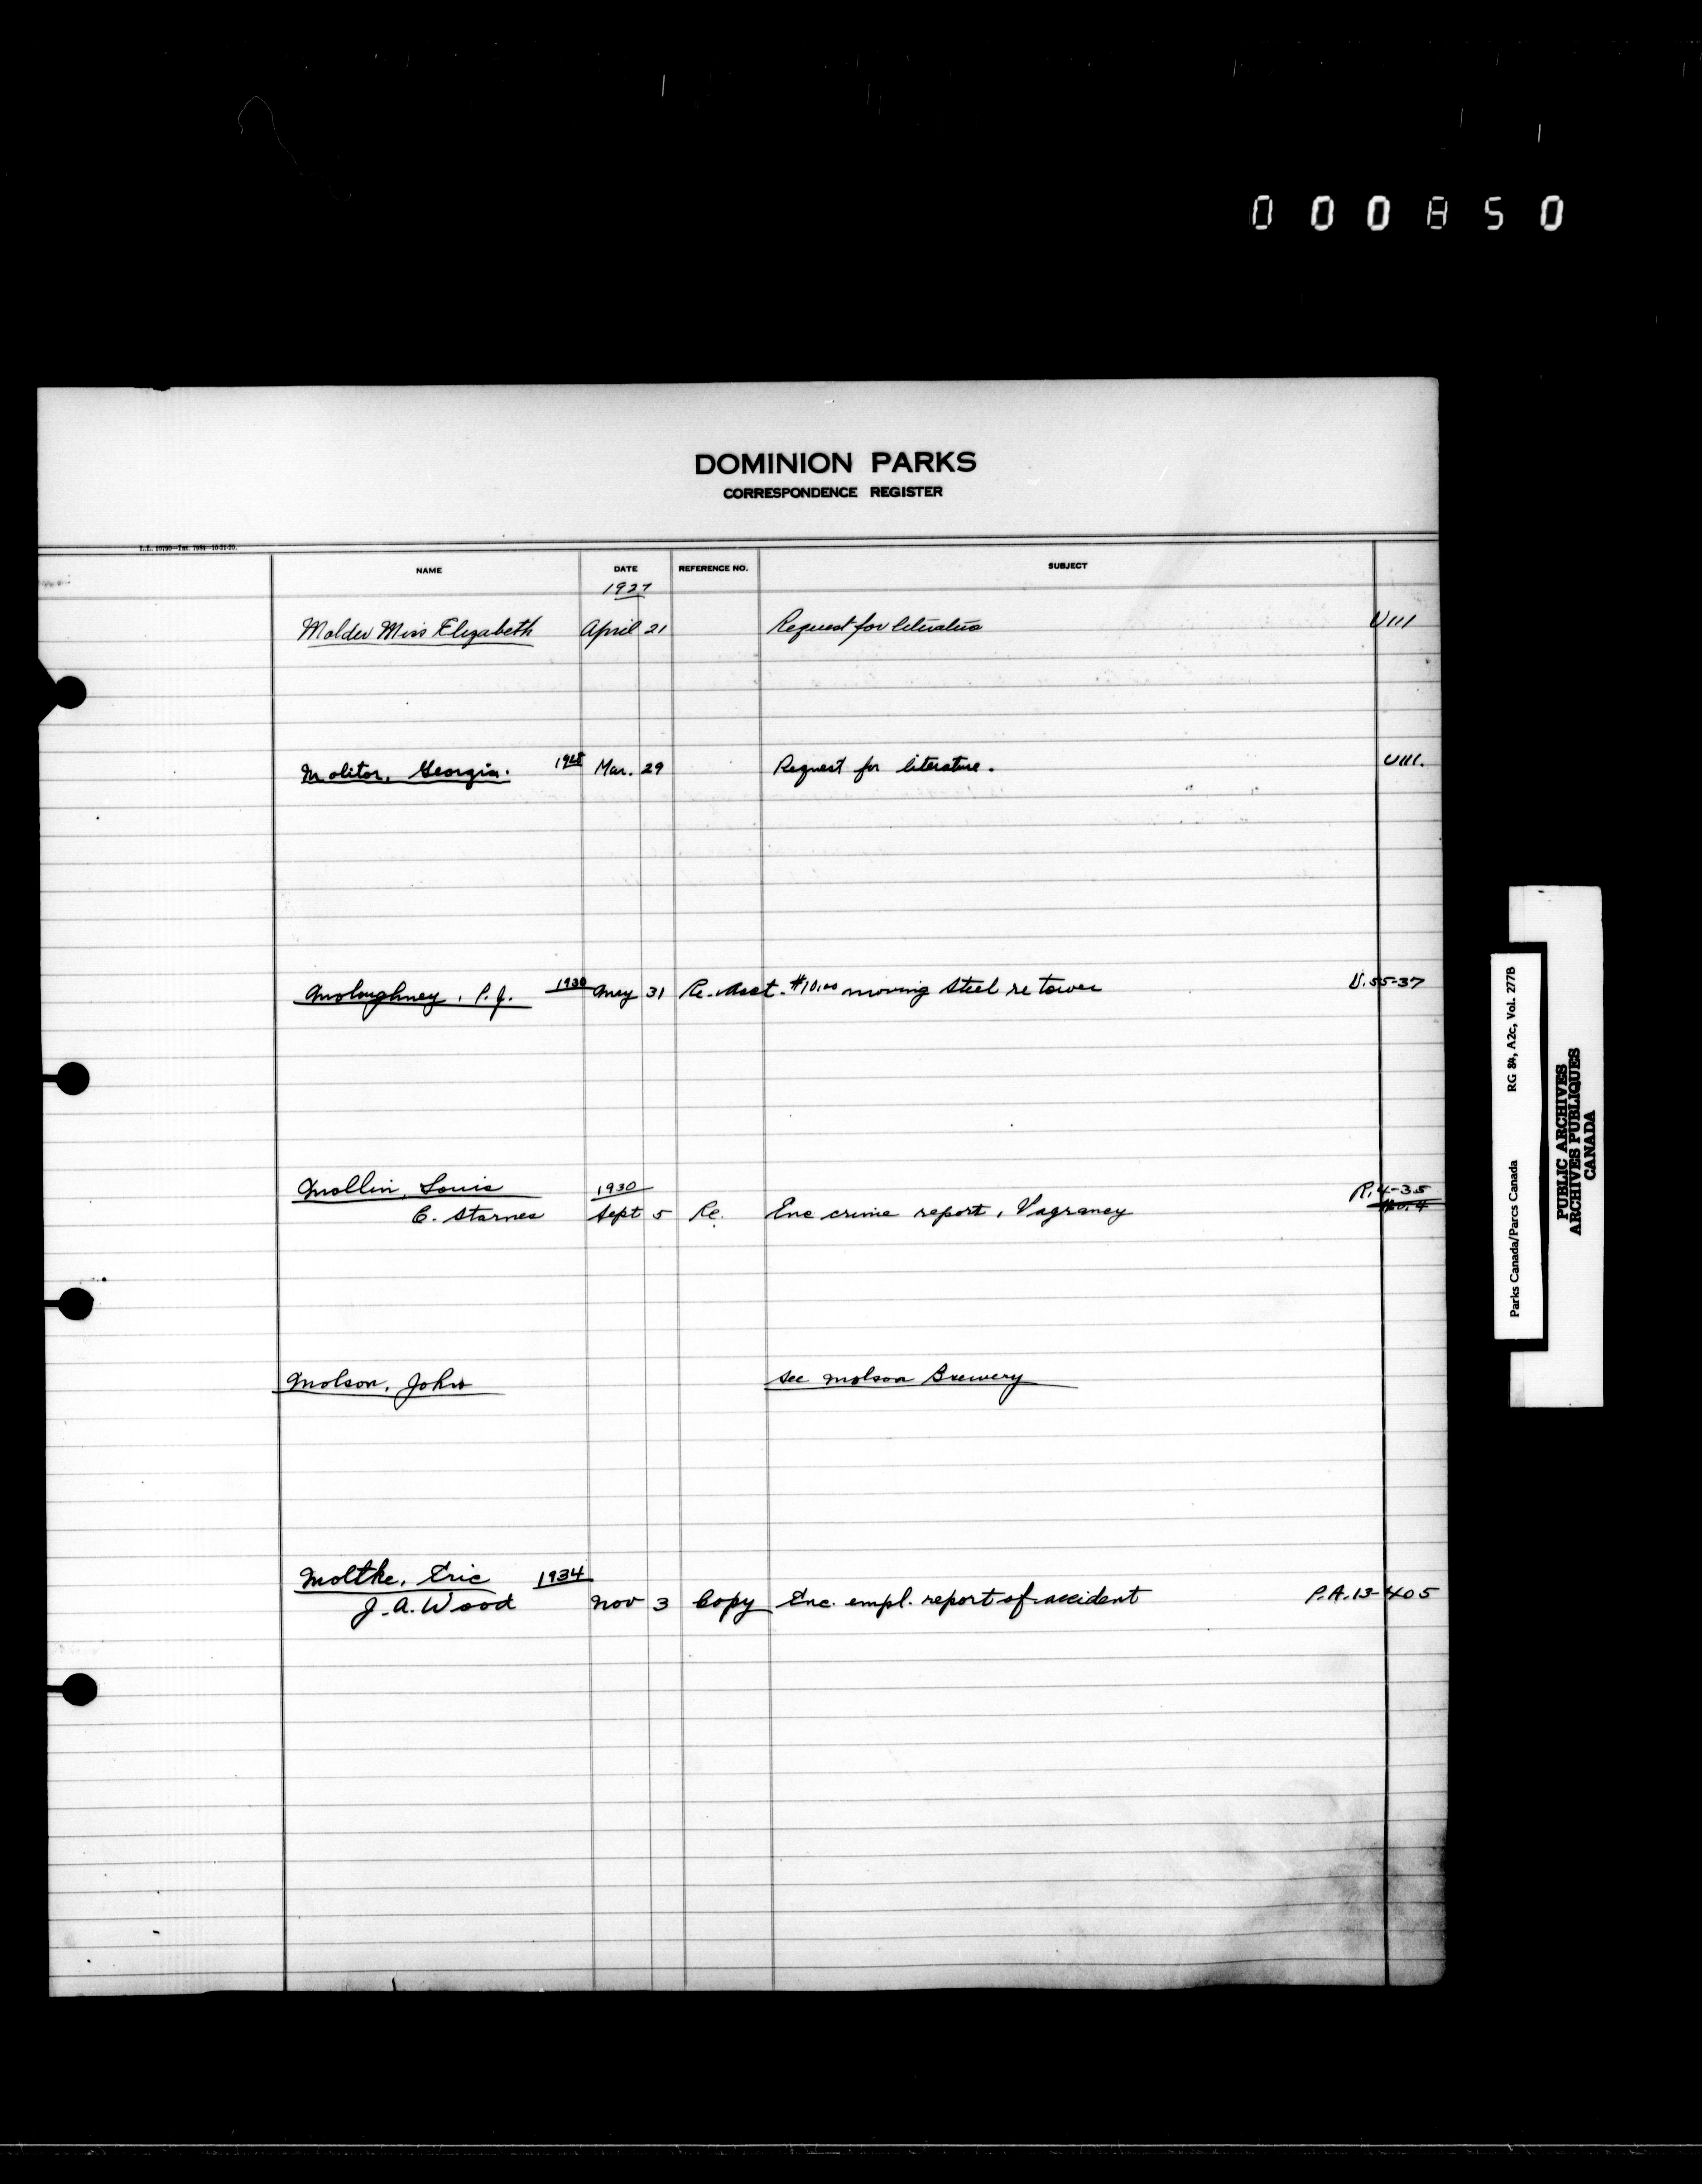 000850
DOMINION PARKS
CORRESPONDENCE REGISTER
NAME DATE REFERENCE NO. SUBJECT
1927
Molder Miss Elizabeth April 21 Request for literature U111
Molitor, Georgia. 1928 Mar. 29 Request for literature. U111.
Moloughney, P.J. 1930 May 31 Re. Acct. $10.00 moving steel re tower U.55-37
Mollin, Louis 1930 R.4-35
C. Starnes Sept 5 Re. Enc crime report, Vagrancy
Molson, John see Molson Brewery
Moltke, Eric 1934
J.A. Wood Nov 3 Copy Enc. empl. report of accident P.A.13-405
Parks Canada/Parcs Canada RG 84, A2c, Vol. 277B
PUBLIC ARCHIVES
ARCHIVES PUBLIQUES
CANADA